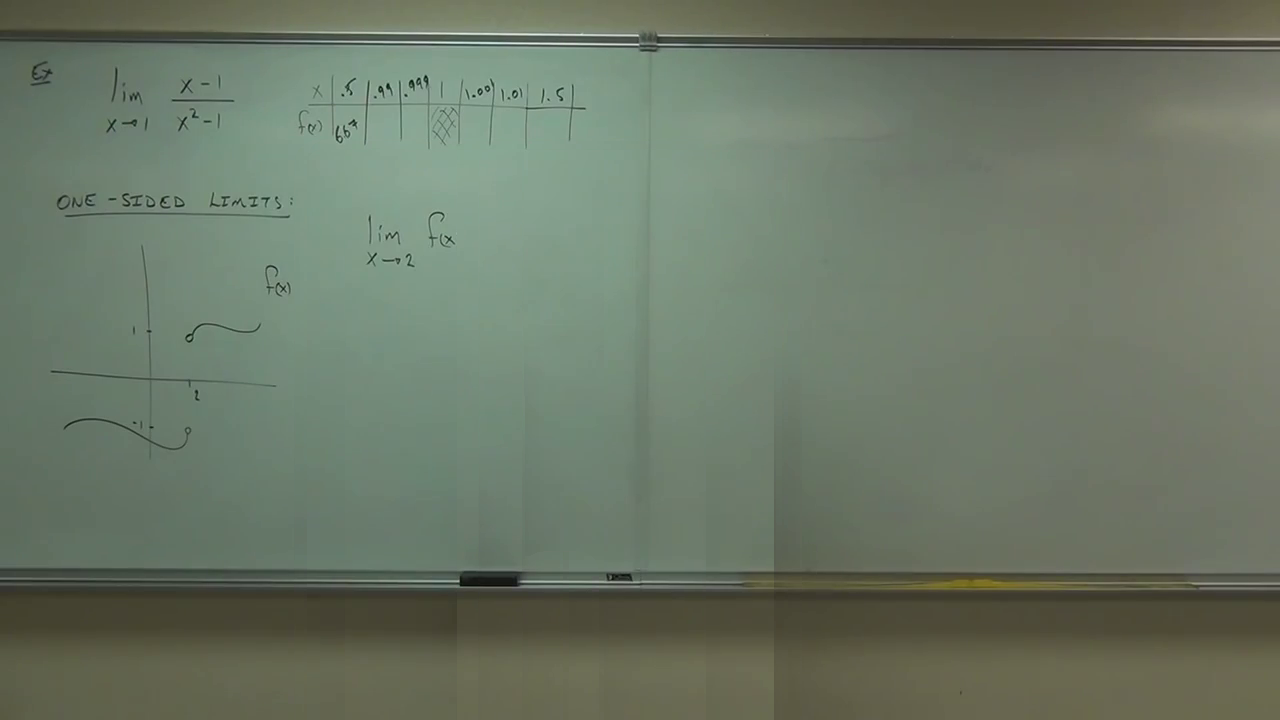 Ex
lim x→1 x-1 / x²-1
x .5 .99 .999 1 1.001 1.01 1.5
f(x)
ONE-SIDED LIMITS:
lim x→2 f(x
f(x)
1
2
-1